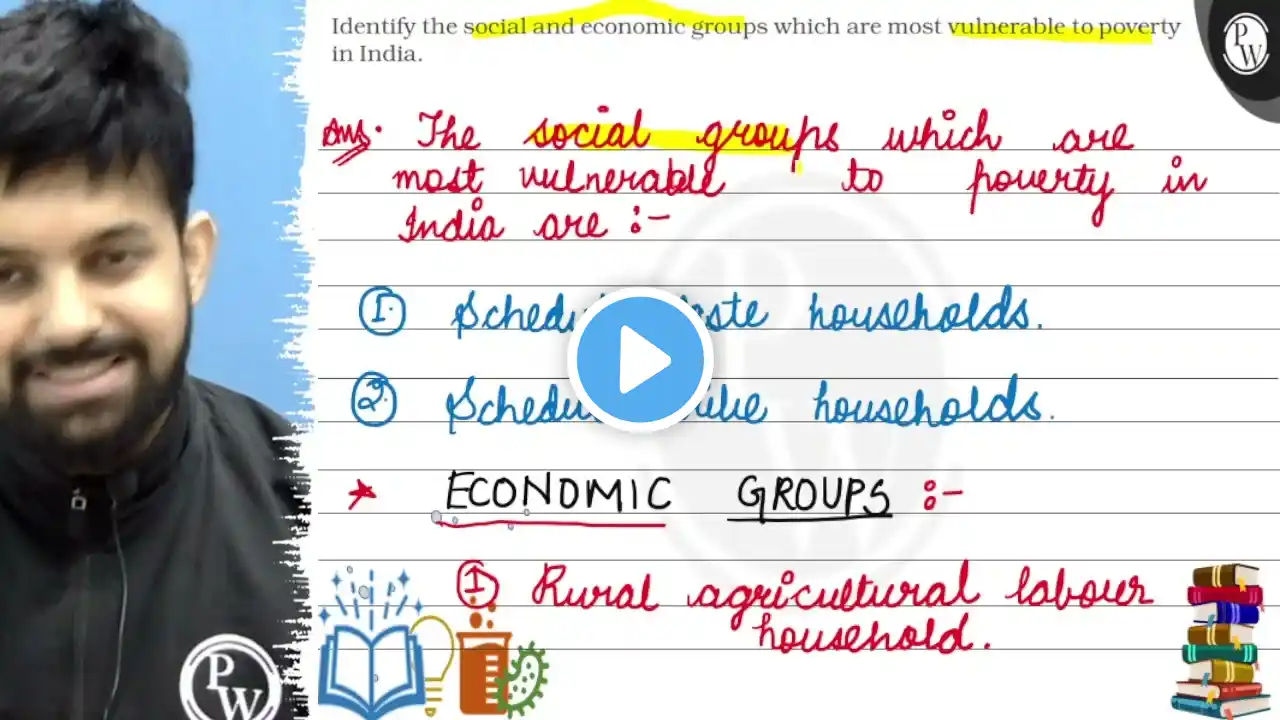 Identify the social and economic groups which are most vulnerable to poverty
in India.
PW
Ans. The social groups which are
most vulnerable to poverty in
India are :-
1. households.
2. households.
ECONOMIC GROUPS :-
1 Rural agricultural labour
household.
PW